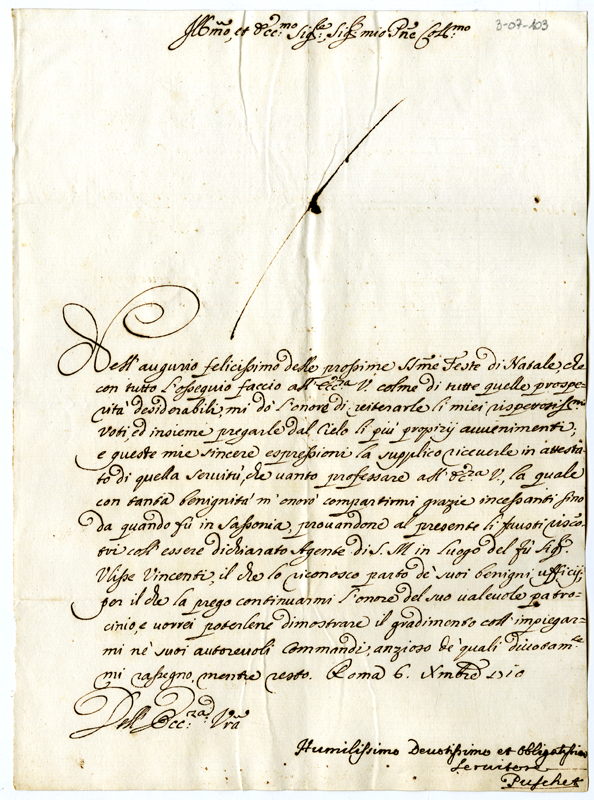 3-07-403
Ill.mo, et Ecc.mo Sig.re, Sig.r mio Pne Coll.mo
Nell'augurio felicissimo delle prossime SSme Feste di Natale, che
con tutto l'ossequio faccio all'Ecc.za V. colme di tutte quelle prospe-
rità desiderabili, mi dò l'onore di reiterarle li miei rispetosiss.mi
voti, ed insieme pregarle dal Cielo li più propizij avvenimenti;
e queste mie sincere espressioni la supplico riceverle in attesta-
to di quella servitù, che vanto professare all'Ecc.za V., la quale
con tanta benignità m'onorò compartirmi grazie incessanti sino
da quando fù in Sassonia, provandone al presente li frutti risco-
tri coll'essere dichiarato Agente di S. M. in luogo del fù Sig.r
Ulisse Vincenti, il che lo riconosco parto de' suoi benigni ufficij,
per il che la prego continuarmi l'onore del suo valevole patro-
cinio, e vorrei poterlene dimostrare il gradimento coll'impiegar-
mi ne' suoi autorevoli Commandi, anzioso de' quali divotam.te
mi rassegno, mentre resto. Roma 6. Xmbre
Dell'Ecc.za Vra
Humilissimo Devotissimo et Obligatissimo
Servitore
Puschet